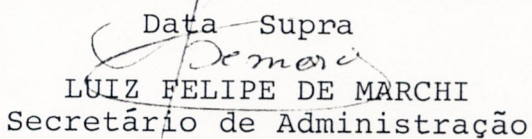 Data Supra
Demarchi
LUIZ FELIPE DE MARCHI
Secretário de Administração